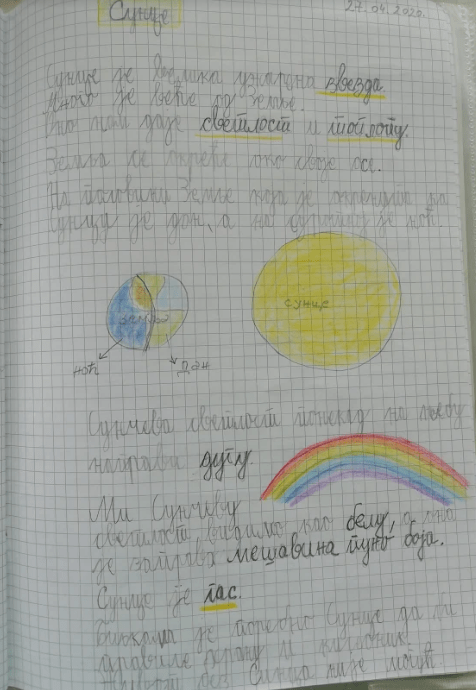 Сунце
27.04.2020.
Сунце је велика ужарена звезда.
Много је веће од Земље.
Оно нам даје светлост и топлоту.
Земља се окреће око своје осе.
На половини Земље која је окренута ка
Сунцу је дан, а на супротној је ноћ.
Земља
сунце
ноћ
дан
Сунчева светлост понекад на небу
направи дугу.
Ми Сунчеву
светлост видимо као белу, а она
је заправо мешавина пуно боја.
Сунце је гас.
Биљкама је потребно Сунце да би
правиле храну и кисеоник.
без Сунца не могу